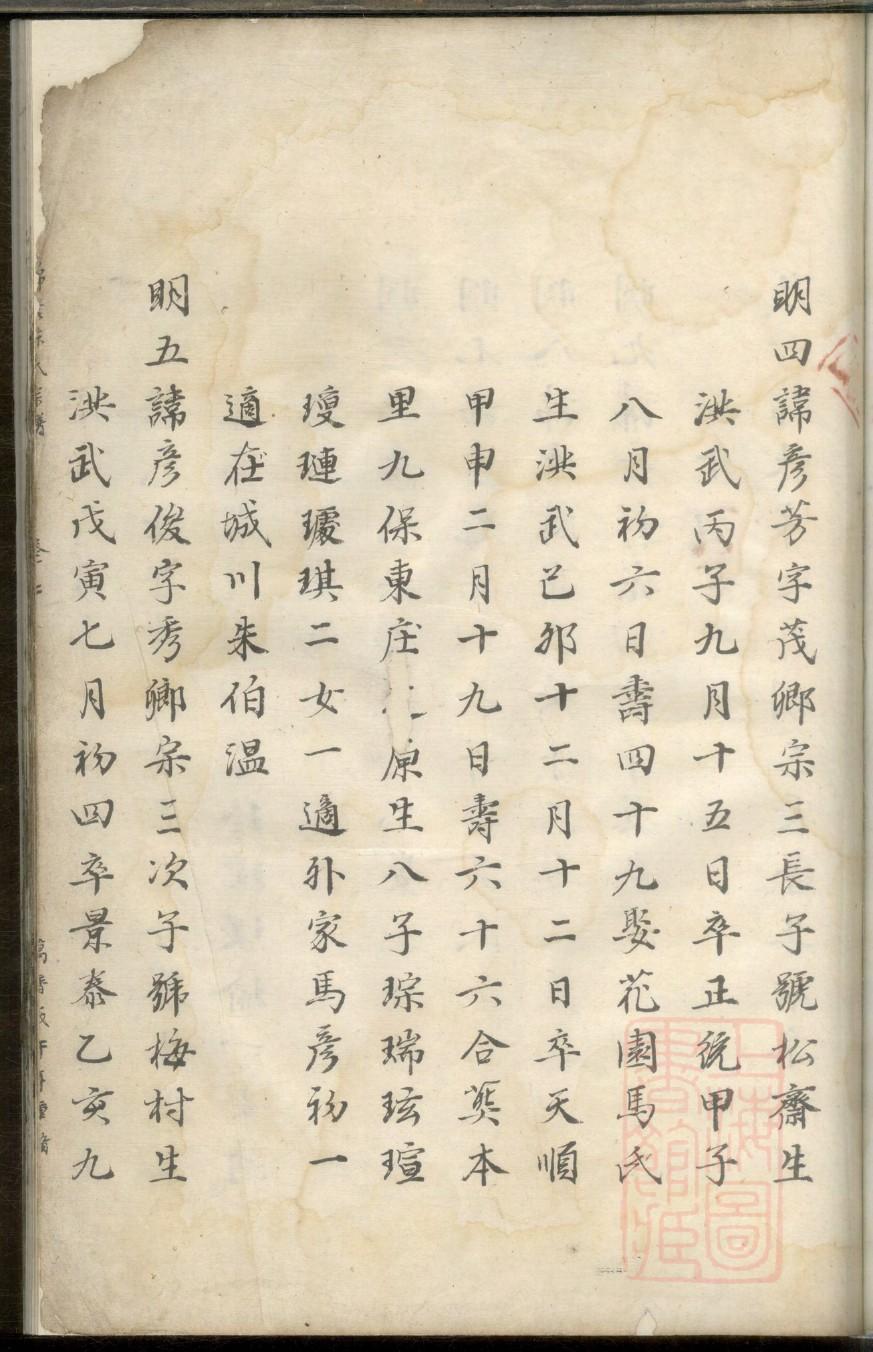 明四諱彥芳字茂卿宗三長子號松齋生
洪武丙子九月十五日卒正統甲子
八月初六日壽四十九娶花園馬氏
生洪武己卯十二月十二日卒天順
甲申二月十九日壽六十六合葬本
里九保東庄原生八子琮瑞玹瑄
瓊璉琪二女一適外家馬彥初一
適在城川朱伯溫
明五諱彥俊字秀卿宗三次子號梅村生
洪武戊寅七月初四卒景泰乙亥九
上海圖書館藏